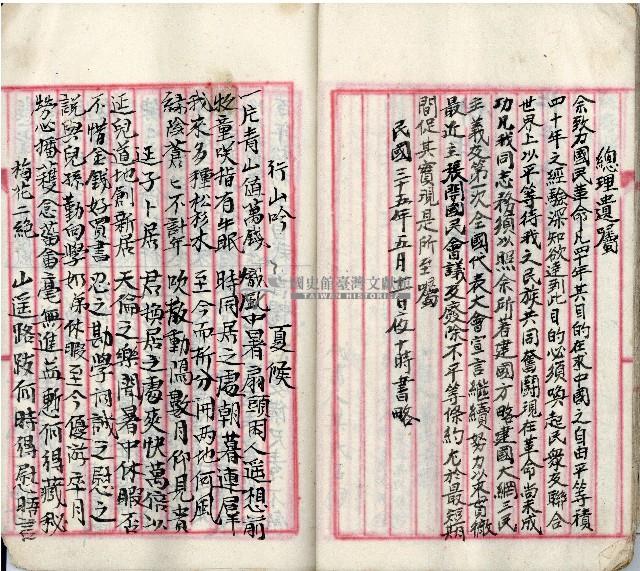 總理遺囑
余致力國民革命凡四十年其目的在求中國之自由平等積
四十年之經驗深知欲達到此目的必須喚起民衆及聯合
世界上以平等待我之民族共同奮鬪現在革命尚未成
功凡我同志務須以照余所著建國方略建國大綱三民
主義及第一次全國代表大會宣言繼續努力以求貫徹
最近主張開國民會議及廢除不平等條約尤於最短期
間促其實現是所至囑
民國三十五年五月 日夜十時書略
行山吟
一片青山值萬錢
牧童咲指有牛眠
我來多種松杉木
綠陰蒼々不計年
廷子卜居
廷兒道地創新居
不惜金錢好買書
說與兒孫勤向學
勞心播穫念菑畬
梅花二絕
夏候
風中暑扇頭困人遥想前
時同居之處朝暮連
至今而析分開兩地何風
吹散動隔數月仰見貴
君擇居之處爽快萬倍以
天倫之樂閒暑中休暇否
忍之勘學相誡之慰之
如弟休暇至今優游卒月
毫無進益慚何得藏秘
山遥路跂何時得慰晤言
國史館臺灣文獻館
TAIWAN HISTORICA